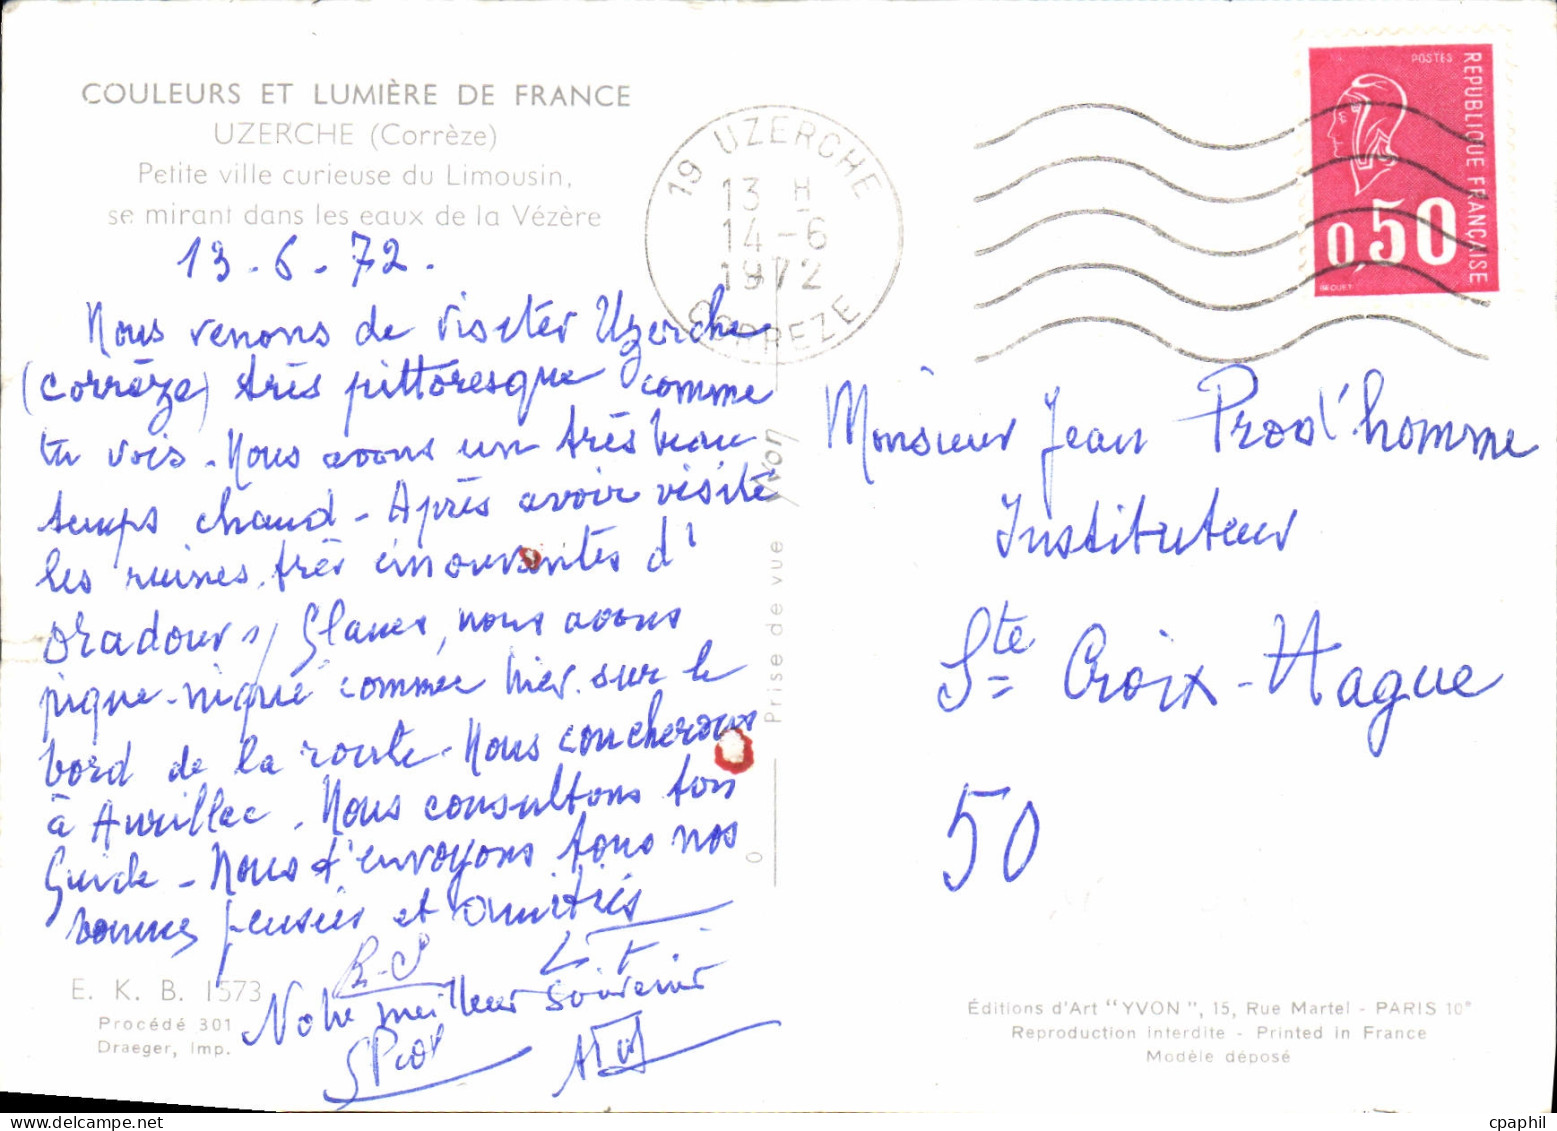 COULEURS ET LUMIÈRE DE FRANCE
UZERCHE (Corrèze)
Petite ville curieuse du Limousin,
se mirant dans les eaux de la Vézère
13.6.72.
Nous venons de visiter Uzerche
(Corrèze) très pittoresque comme
tu vois. Nous avons un très beau
temps chaud - Après avoir visité
les ruines très émouvantes d'
Oradour s/ Glanes, nous avons
pique-niqué comme hier sur le
bord de la route. Nous coucherons
à Aurillac. Nous consultons ton
Guide - Nous t'envoyons tous nos
bonnes pensées et amitiés
Notre meilleur souvenir
E. K. B. 1573
Procédé 301
Draeger, Imp.
Prise de vue Yvon
0
19 UZERCHE
13 H
14-6
1972
CORREZE
POSTES
REPUBLIQUE FRANÇAISE
0,50
Monsieur Jean Prod'homme
Instituteur
Ste Croix-Hague
50
Éditions d'Art "YVON", 15, Rue Martel - PARIS 10e
Reproduction interdite - Printed in France
Modèle déposé
cpaphil